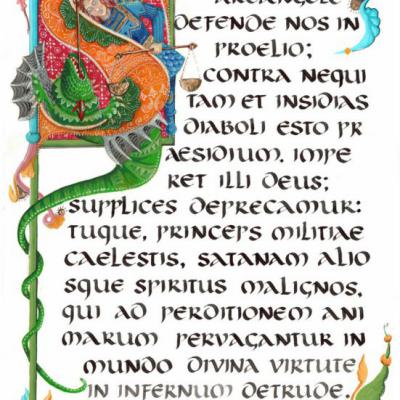 ARCANGELE
DEFENDE NOS IN
PROELIO;
CONTRA NEQUI
TAM ET INSIDIAS
DIABOLI ESTO PR
AESIDIUM. IMPE
RET ILLI DEUS;
SUPPLICES DEPRECAMUR:
TUQUE, PRINCEPS MILITIAE
CAELESTIS, SATANAM ALIO
SQUE SPIRITUS MALIGNOS,
QUI AD PERDITIONEM ANI
MARUM PERVAGANTUR IN
MUNDO DIVINA VIRTUTE
IN INFERNUM DETRUDE.